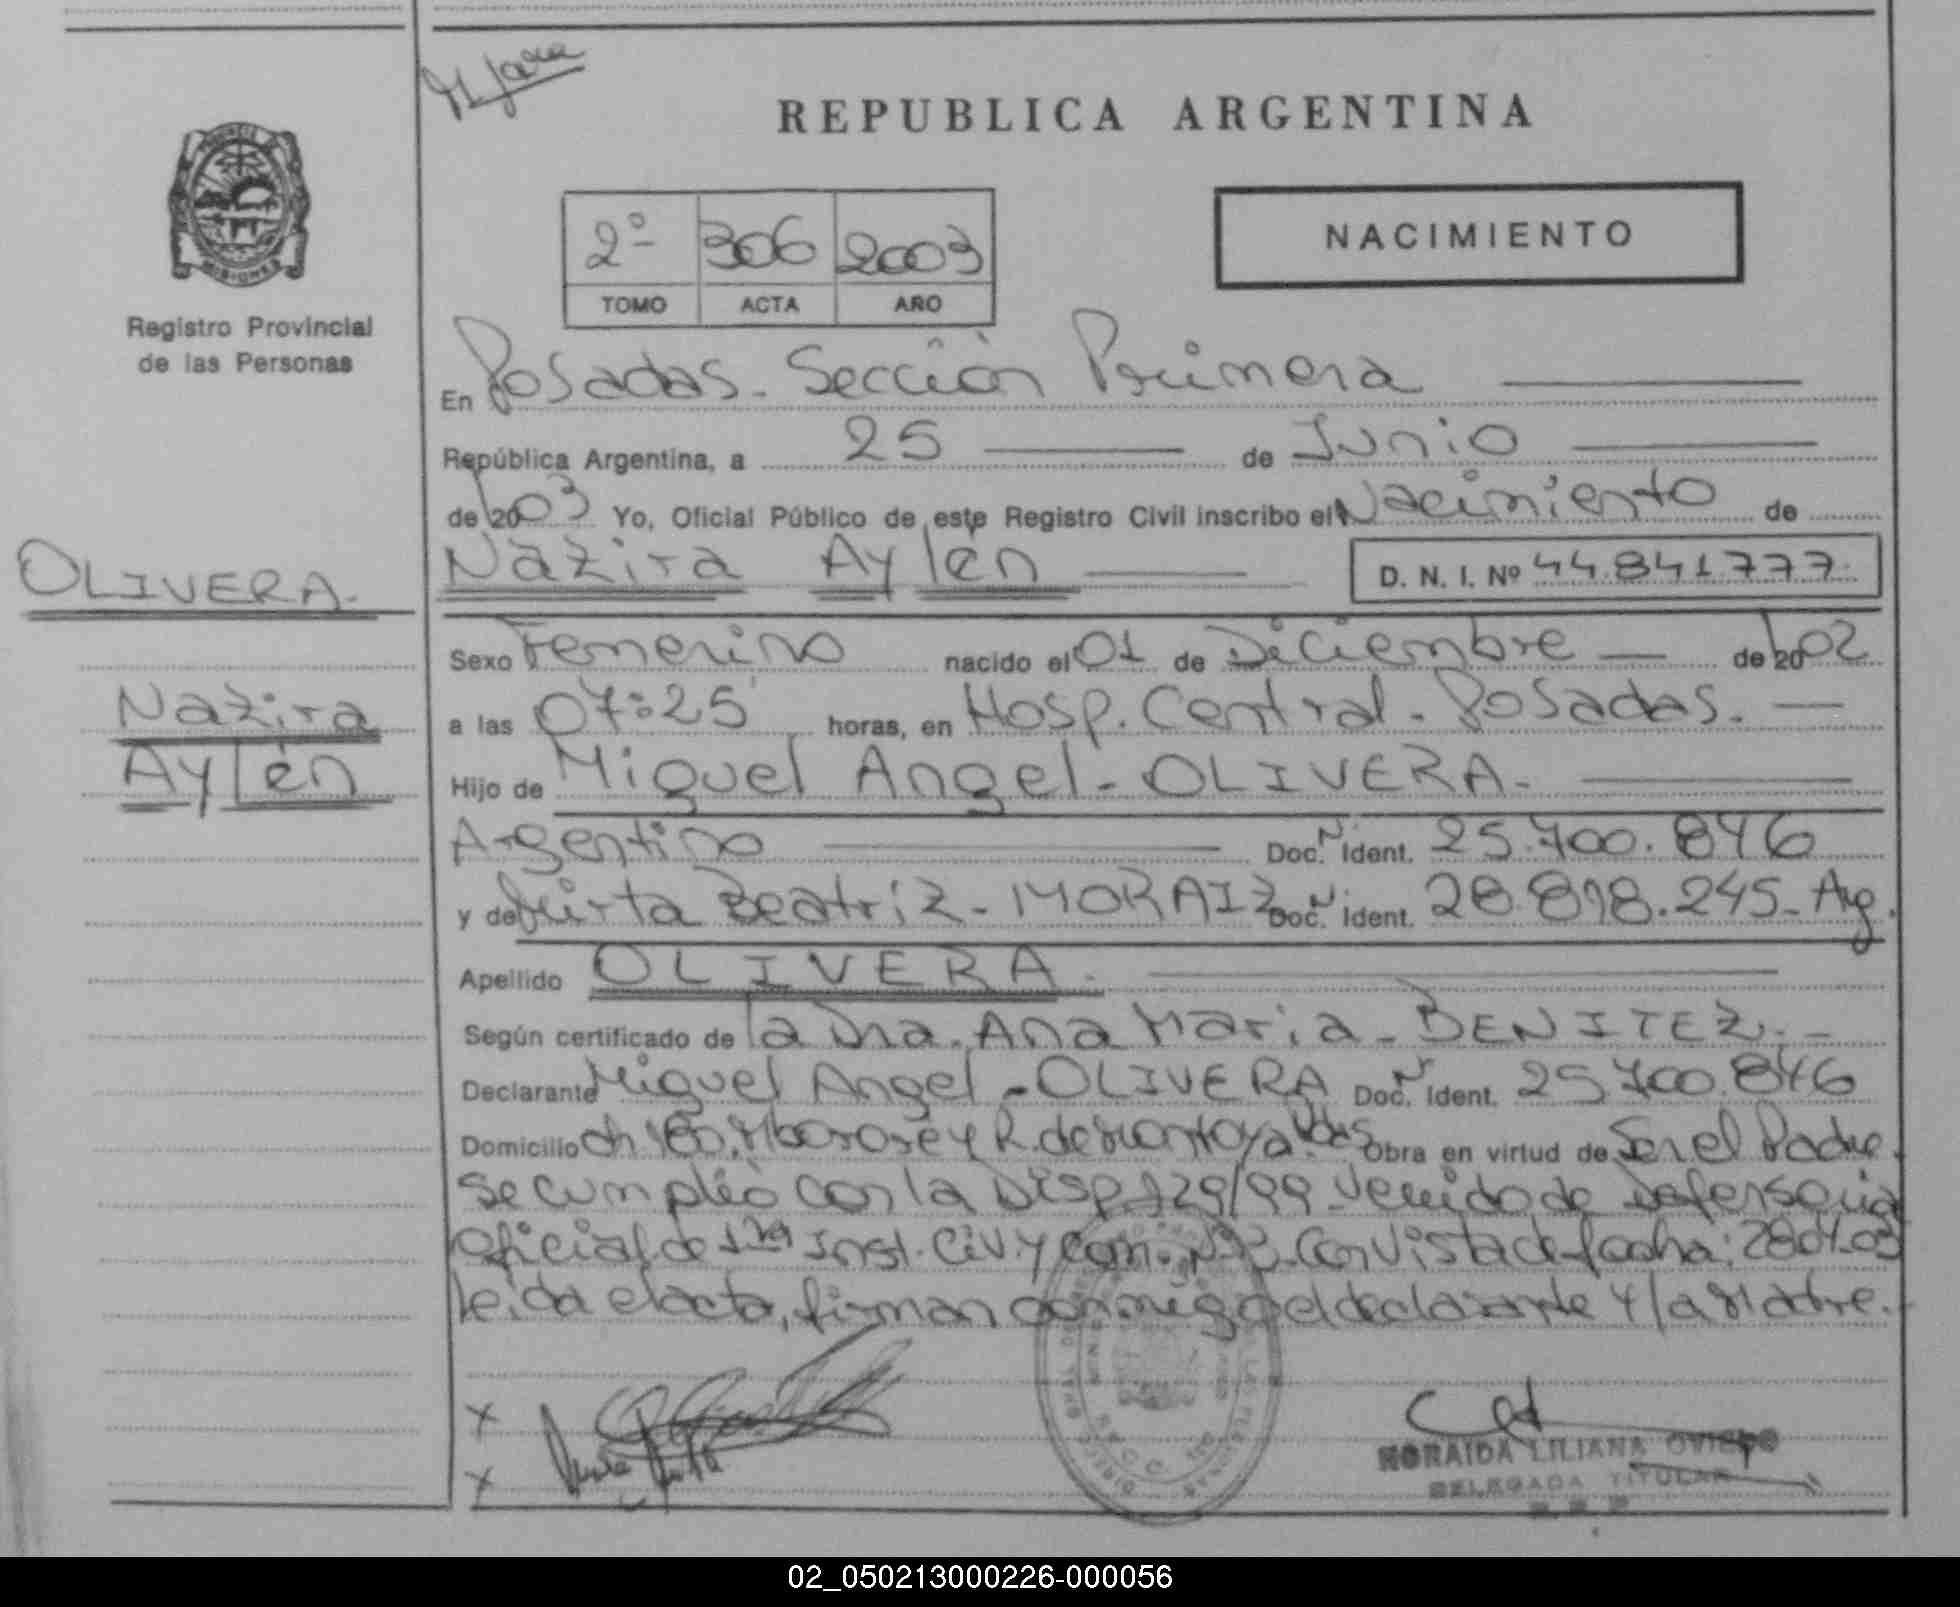 REPUBLICA ARGENTINA
MISIONES
Registro Provincial
de las Personas
2º 306 2003
TOMO ACTA AÑO
NACIMIENTO
En Posadas. Sección Primera
República Argentina, a 25 de Junio
de 2003 Yo, Oficial Público de este Registro Civil inscribo el Nacimiento de
OLIVERA.
Nazira
Aylén
Nazira Aylén D. N. I. Nº 44.841.777.
Sexo Femenino nacido el 01 de Diciembre de 2002
a las 07:25 horas, en Hosp. Central. Posadas.
Hijo de Miguel Angel - OLIVERA.
Argentino Doc. N Ident. 25.700.846
y de Mirta Beatriz - MORAIZ Doc. N Ident. 28.818.245 - Arg.
Apellido OLIVERA.
Según certificado de la Dra. Ana Maria - BENITEZ.
Declarante Miguel Angel - OLIVERA Doc. N Ident. 25.700.846
Domicilio Ch y R. de Montoya. Obra en virtud de Ser el Padre.
Se cumplió con la Disp. 129/99 Venido de Defensoria
Oficial de 1ra Inst. Civ. y Com. Con Vista de fecha:
leida el acta, firman conmigo el declarante y la Madre.
X
X
NORAIDA LILIANA OVIEDO
DELEGADA TITULAR
02_050213000226-000056